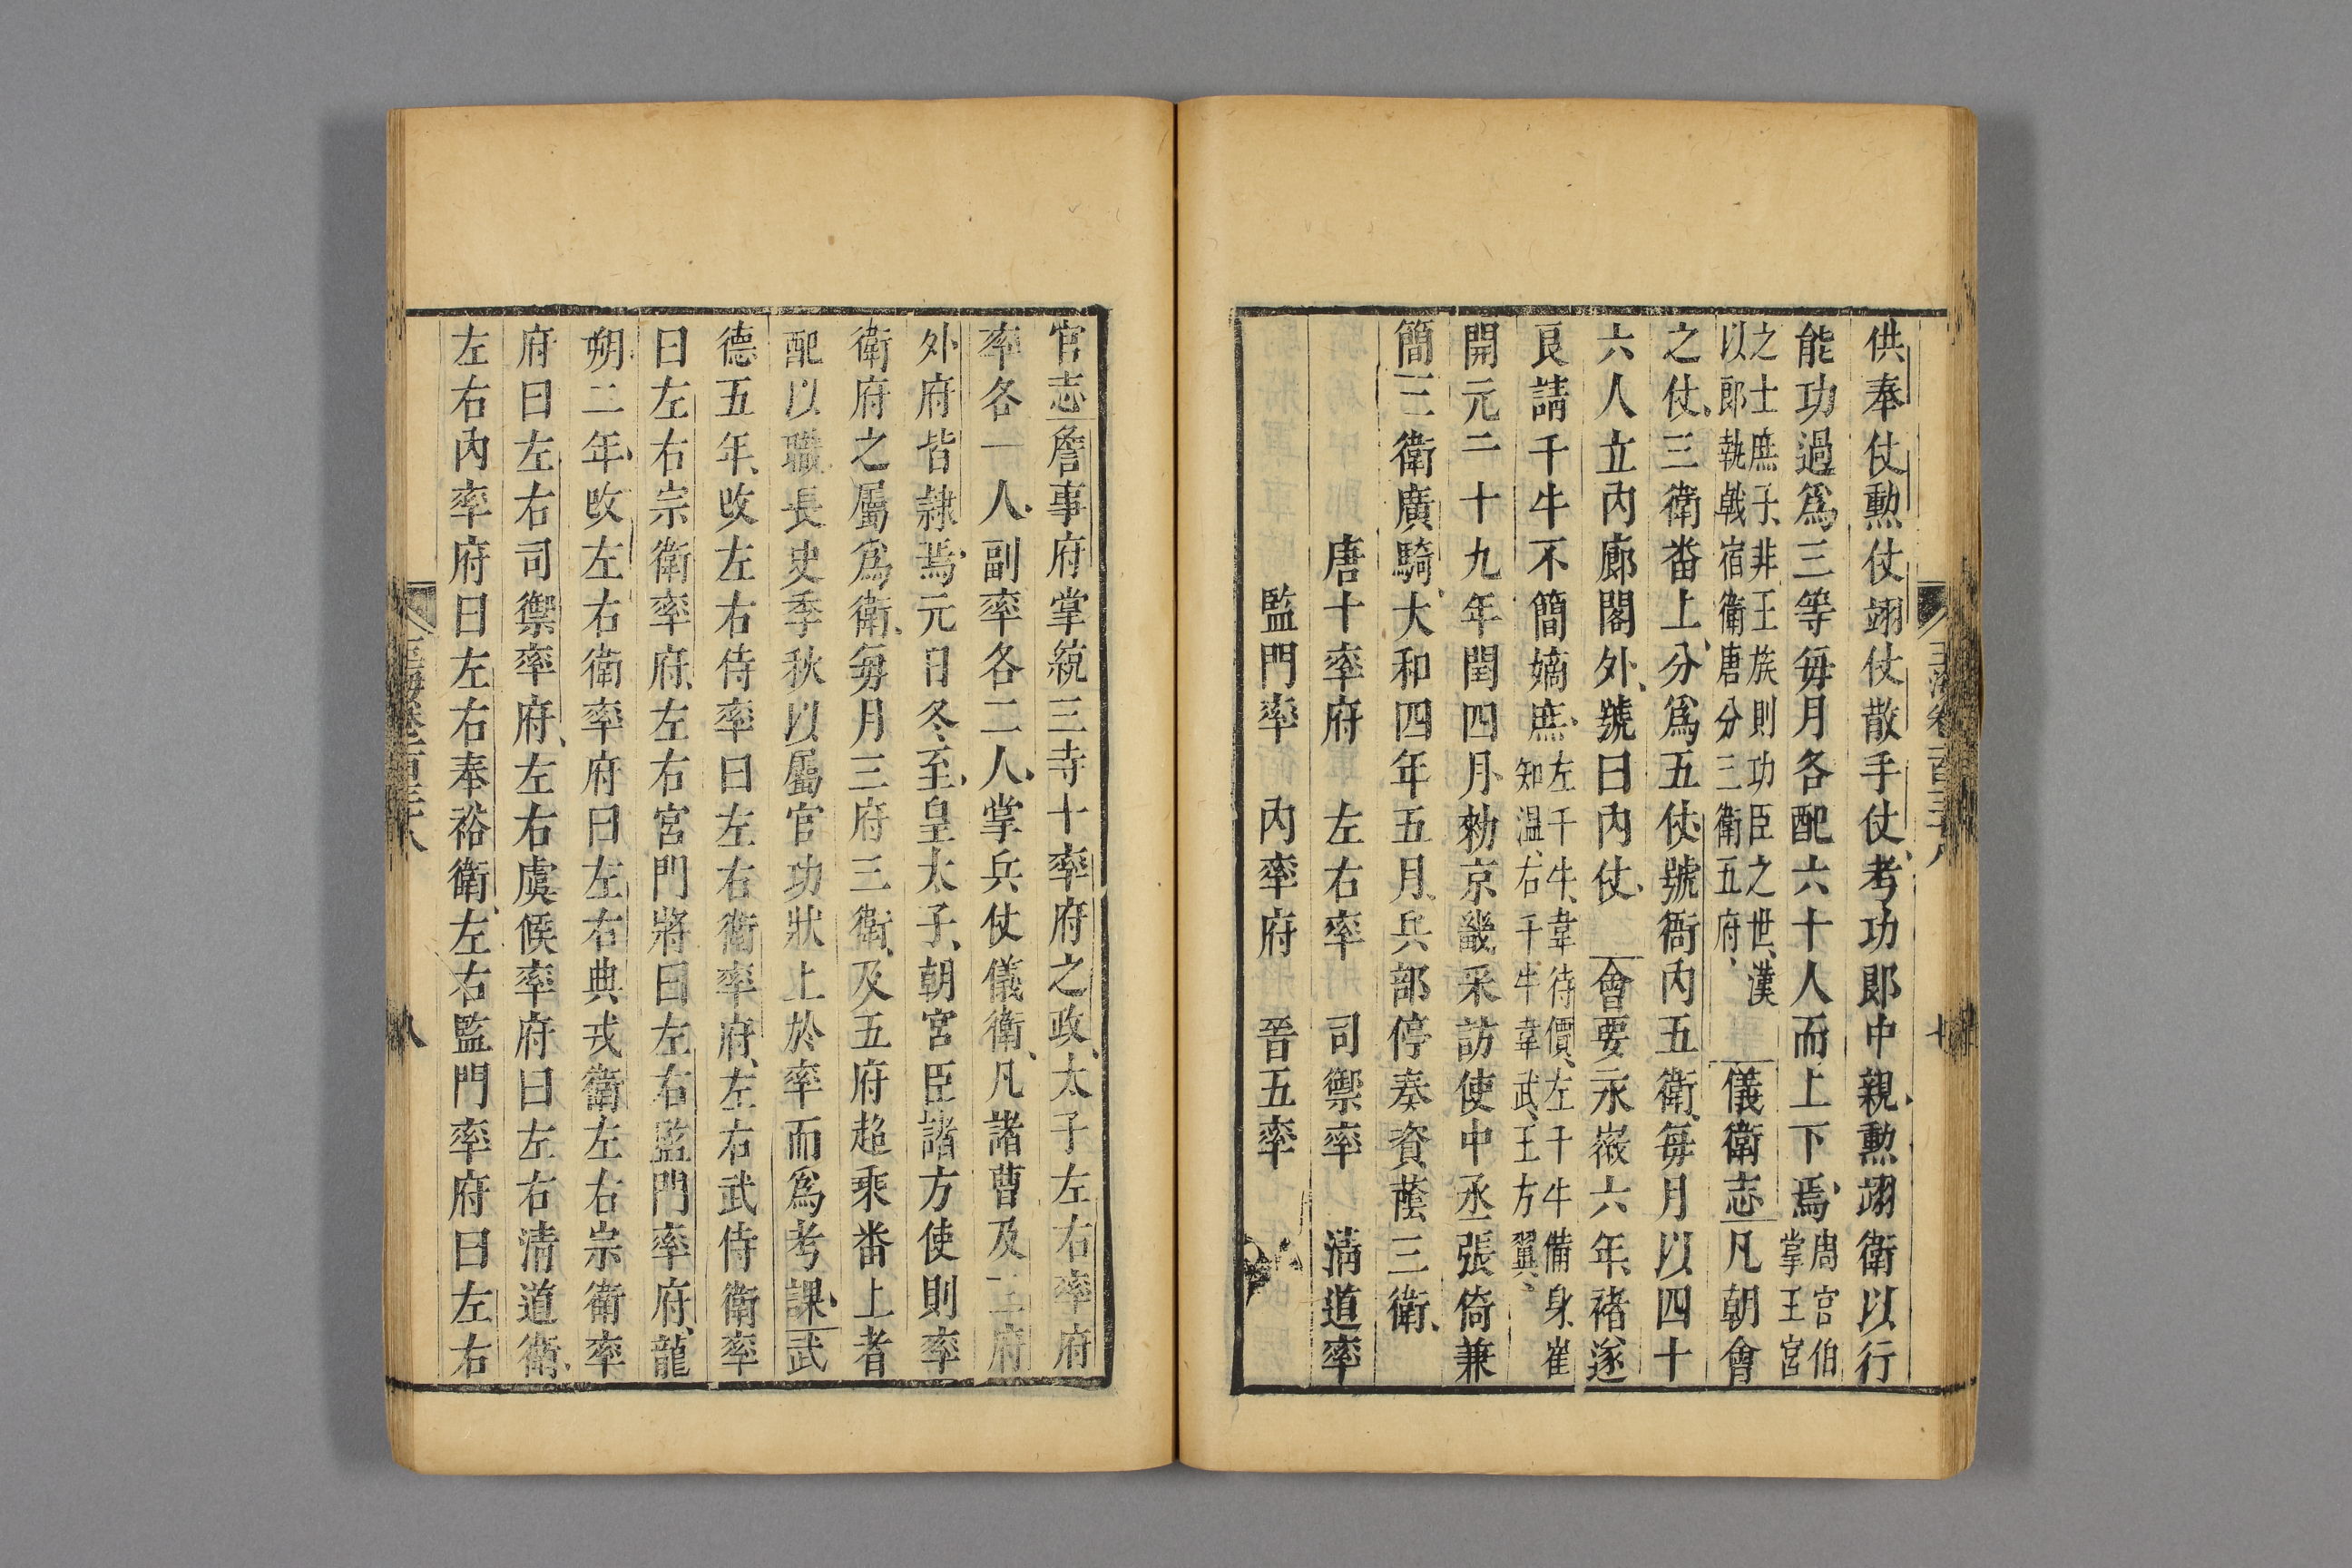 玉海卷一百三十八
供奉仗勲仗翊仗散手仗考功郎中親勲翊衛以行
能功過爲三等毎月各配六十人而上下焉周宮伯掌王宮
之士庶子非王族則功臣之世漢以郎執戟宿衛唐分三衛五府儀衛志凡朝會
之仗三衛畨上分爲五仗號衙内五衛毎月以四十
六人立内廊閤外號曰内仗會要永徽六年褚遂
良請千牛不簡嫡庶左千牛韋待價左千牛備身崔知溫右千牛韋武王方翼
開元二十九年閏四月勑京畿采訪使中丞張倚兼
簡三衛廣騎大和四年五月兵部停奏資蔭三衛
唐十率府　左右率　司禦率　清道率
監門率　内率府　晉五率
官志詹事府掌統三寺十率府之政太子左右率府
率各一人副率各二人掌兵仗儀衛凡諸曹及三府
外府皆隷焉元日冬至皇太子朝宮臣諸方使則率
衛府之屬爲衛毎月三府三衛及五府超乘畨上者
配以職長史季秋以屬官功狀上於率而爲考課武
德五年改左右侍率曰左右衛率府左右武侍衛率
曰左右宗衛率府左右宮門將曰左右監門率府龍
朔二年改左右衛率府曰左右典戎衛左右宗衛率
府曰左右司禦率府左右虞候率府曰左右清道衛
左右内率府曰左右奉裕衛左右監門率府曰左右
玉海卷一百三十八
八